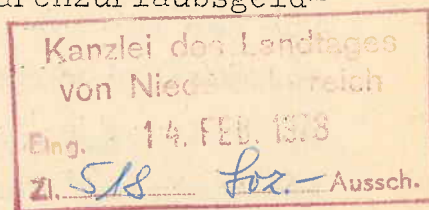 Kanzlei des Landtages
von Niederösterreich
Eing. 14. FEB. 1978
Zl. 518 Soz.- Aussch.